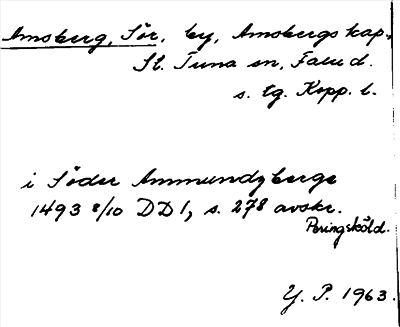 Amsberg, Sör, by, Amsbergs kap.,
St. Tuna sn, Falu d.
s. tg. Kopp. l.
i Söder Ammundzberge
1493 8/10 DD 1, s. 278 avskr.
Peringsköld.
Y. P. 1963.